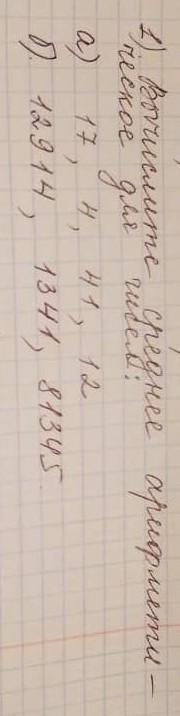 1) Вычислите среднее арифмети-
ческое для чисел:
а) 17, 4, 41, 12
б) 12914, 1341, 81345.